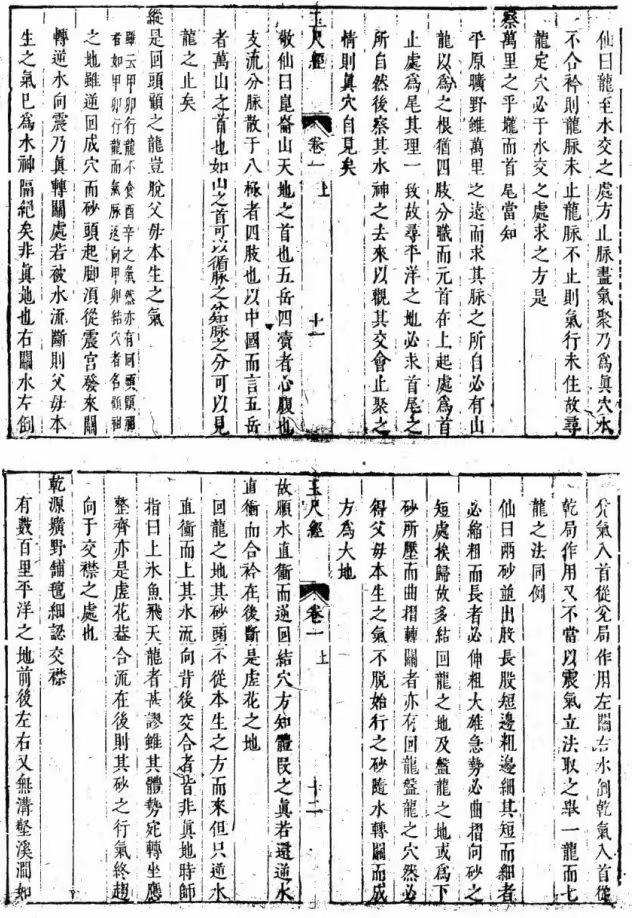 仙曰龍至水交之處方止脉盡氣聚乃爲眞穴水
不合衿則龍脉未止龍脉不止則氣行未住故尋
龍定穴必于水交之處求之方是
察萬里之平壠而首尾當知
平原曠野雖萬里之遠而求其脉之所自必有山
龍以爲之根猶四肢分職而元首在上起處爲首
止處爲尾其理一致故尋平洋之地必求首尾之
所自然後察其水神之去來以觀其交會止聚之
情則眞穴自見矣
玉尺經 卷一上 十一
敬仙曰崑崙山天地之首也五岳四瀆者心腹也
支流分脉散于八極者四肢也以中國而言五岳
者萬山之首也如山之首可以循脉之分知脉之分可以見
龍之止矣
縱是回頭顧之龍豈脫父母本生之氣
雖云甲卯行龍不食酉辛之氣然亦有回頭顧祖
者如甲卯行龍而氣脉返向甲卯結穴者名顧祖
之地雖逆回成穴而砂頭起脚湏從震宮發來關
轉逆水向震乃眞轉關處若被水流斷則父母本
生之氣已爲水神隔絕矣非眞地也右關水左倒
兊氣入首從兊局作用左關右水倒乾氣入首從
乾局作用又不當以震氣立法取之舉一龍而七
龍之法同例
仙曰兩砂並出股長股短邊粗邊細其短而細者
必縮粗而長者必伸粗大雄急勢必曲摺向砂之
短處挨歸故多結回龍之地及盤龍之地或爲下
砂所壓而曲摺轉關者亦有回龍盤龍之穴然必
得父母本生之氣不脫始行之砂隨水轉關而成
方爲大地
玉尺經 卷一上 十二
故順水直衝而逆回結穴方知體段之眞若還逆水
直衝而合衿在後斷是虛花之地
回龍之地其砂頭不從本生之方而來但只逆水
直衝而上其水流向背後交合者皆非眞地時師
指曰上水魚飛天龍者甚謬雖其體勢宛轉坐應
整齊亦是虛花葢合流在後則其砂之行氣終趨
向于交襟之處也
乾源曠野舖氊細認交襟
有數百里平洋之地前後左右又無溝壑溪澗如